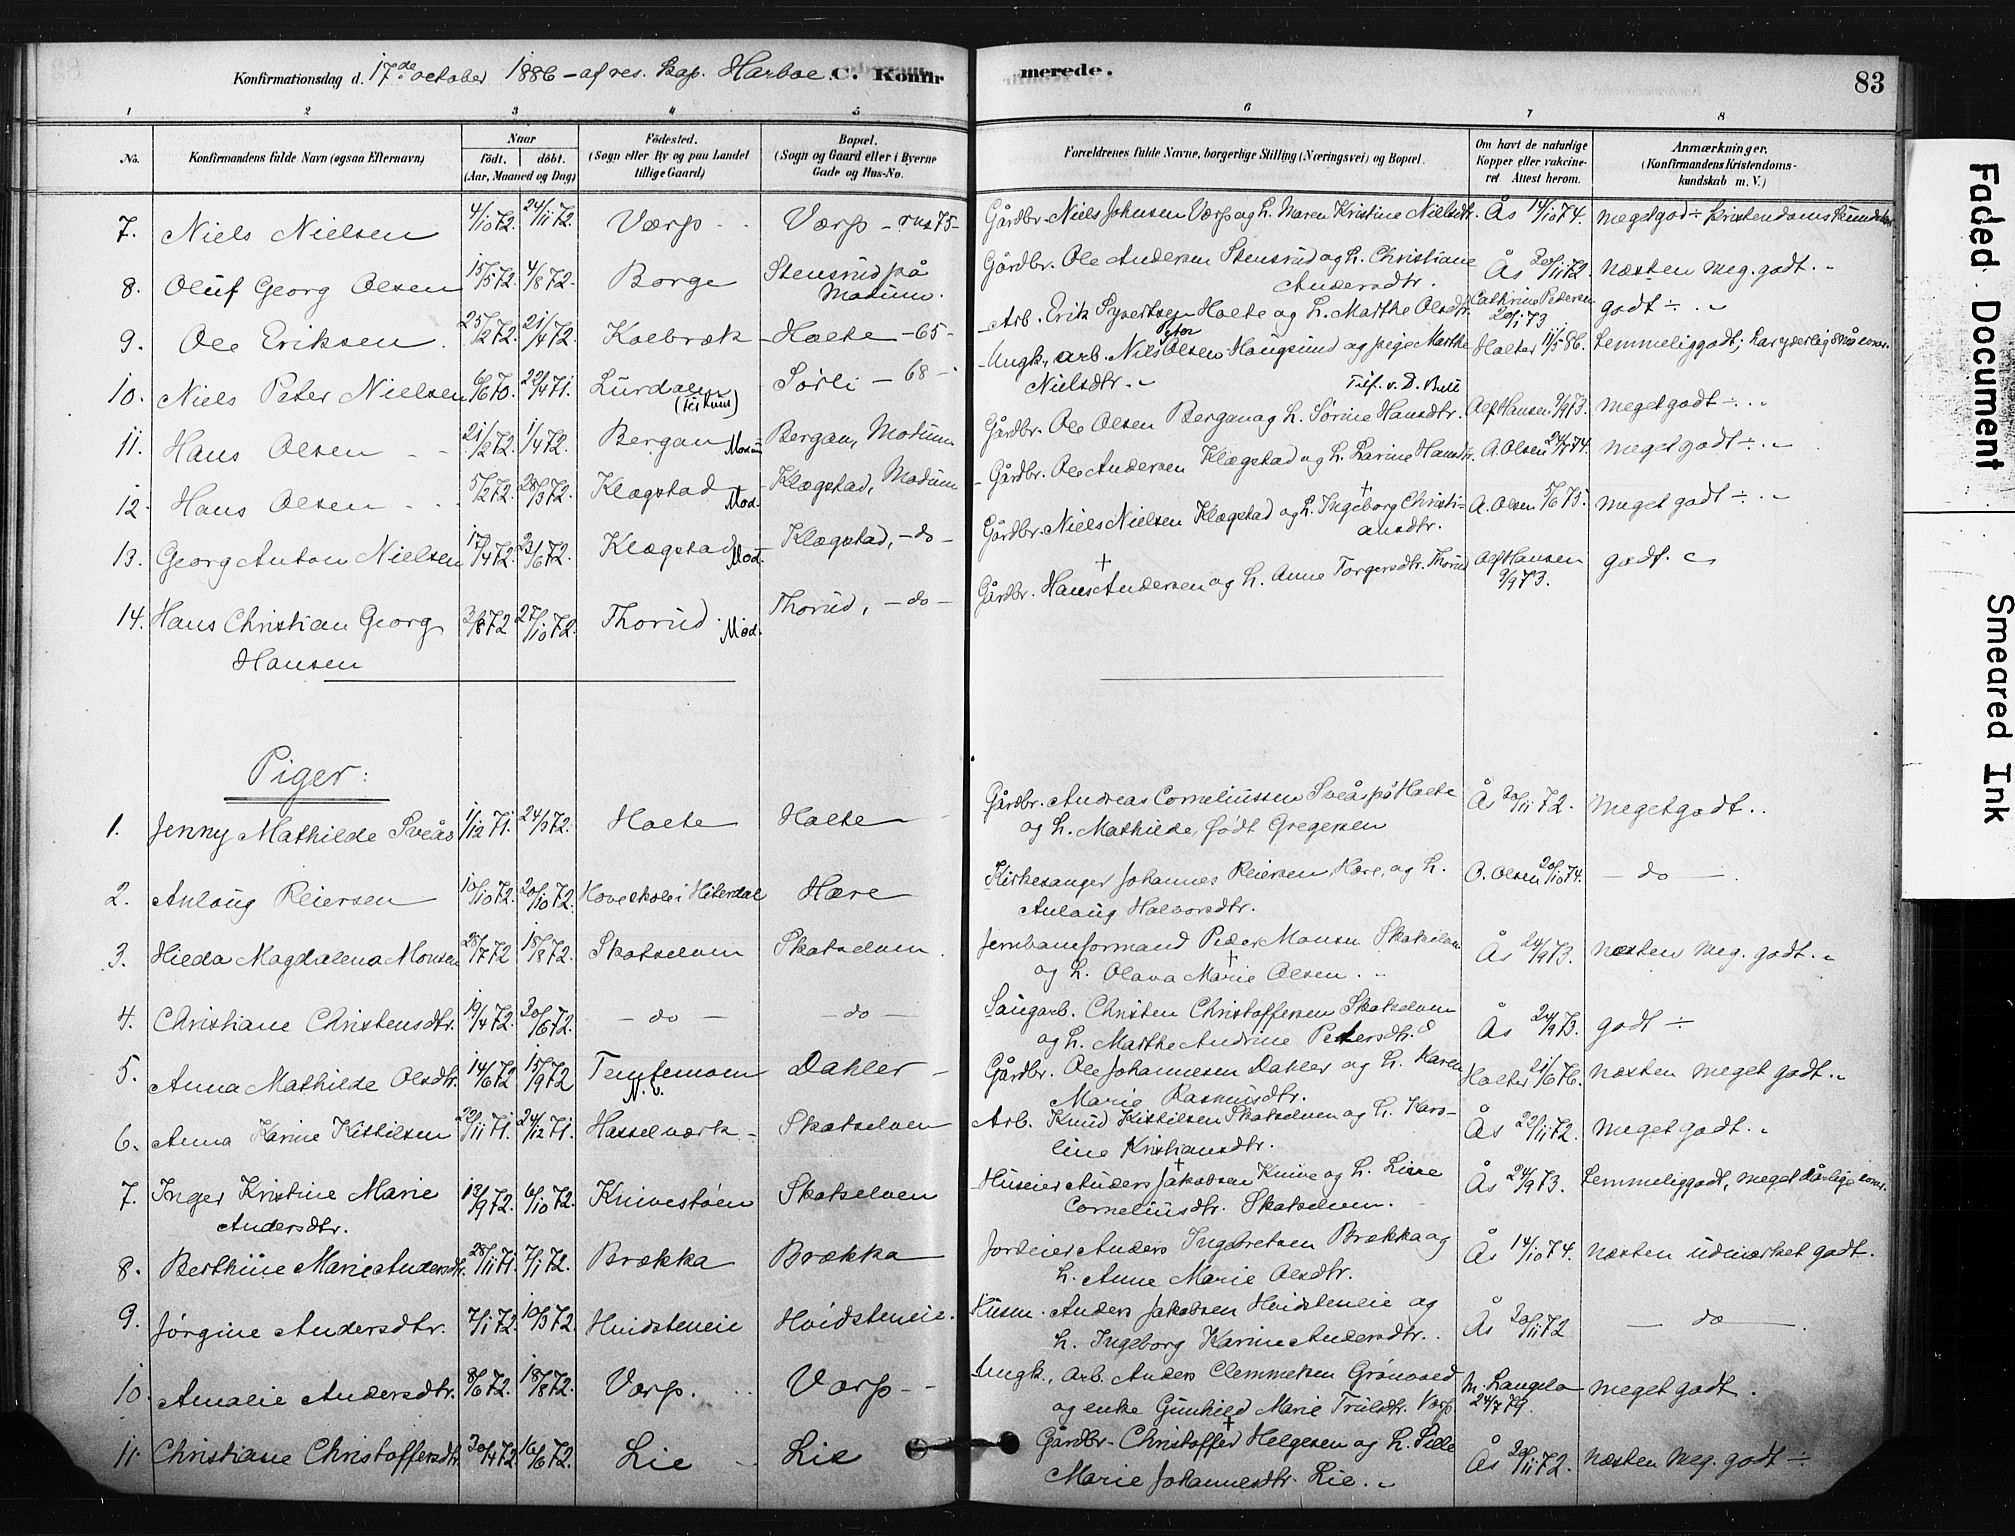 Konfirmationsdag d. 17de october 1886 - af res. kap. Harboe. C. Konfirmerede. 83
1 2 3 4 5 6 7 8
No. Konfirmandens fulde Navn (ogsaa Efternavn) Naar födt. döbt. (Aar, Maaned og Dag) Födested. (Sogn eller By og paa Landet tillige Gaard) Bopæl. (Sogn og Gaard eller i Byerne Gade og Hus-No. Forældrenes fulde Navne, borgerlige Stilling (Næringsvei) og Bopæl. Om havt de naturlige Kopper eller vakcineret Attest herom. Anmærkninger. (Konfirmandens Kristendomskundskab m. V.)
7. Niels Nielsen 4/10 72. 24/11 72. Værp Værp Gårdbr. Niels Johnsen Værp og h. Maren Kristine Nielsdtr. Ås 14/10 74. meget god ÷ kristendomskundskab
8. Oluf Georg Olsen 15/5 72. 4/8 72. Borge Stensrud på Modum. Gårdbr. Ole Andersen Stensrud og h. Christiane Andersdtr. Ås 20/11 72. næsten meg. godt.
9. Ole Eriksen 25/2 72. 21/4 72. Kolbræk Holte - 65 - Arb. Erik Syvertsen Holte og h. Marthe Olsdtr. Cathrine Petersen 20/1 73 godt ÷
10. Niels Peter Nielsen 6/6 70. 22/4 71. Lurdalen Sørli - 68 - Ungk., arb. Niels Olsen Haugsund og pige Marthe Nielsdtr. Holter 11/5 86. temmeliggodt;
11. Hans Olsen 21/2 72. 1/4 72. Bergan Mod. Bergan, Modum Gårdbr. Ole Olsen Bergan og h. Sørine Hansdtr. Alf Hansen 9/9 73. meget godt ÷
12. Hans Olsen 5/2 72. 28/3 72. Klægstad Mod. Klægstad, Modum Gårdbr. Ole Andersen Klægstad og h. Larine Hansdtr. A. Olsen 24/7 74. meget godt ÷
13. Georg Anton Nielsen 17/4 72. 23/6 72. Klægstad Mod. Klægstad, - do - Gårdbr. Niels Nielsen Klægstad og h. Ingeborg Christiansdtr. A. Olsen 5/6 75. meget godt ÷
14. Hans Christian Georg Hansen 3/8 72 27/10 72. Thorud Mod. Thorud, - do - Gårdbr. Hans Andersen og h. Anne Torgersdtr. Thorud Alf Hansen 9/9 73. godt.
Piger:
1. Jenny Mathilde Sveås 1/12 71. 24/3 72. Holte Holte Gårdbr. Andreas Corneliussen Sveås på Holte og h. Mathilde, født Gregersen Ås 20/11 72. meget godt.
2. Anlaug Reiersen 10/10 72. 20/10 72. Hove skole i Hiterdal Hære Kirkesanger Johannes Reiersen Hære, og h. Anlaug Halvorsdtr. O. Olsen 20/10 74. - do -
3. Hilda Magdalena Monsen 28/7 72 18/8 72. Skotselven Skotselven Jernbaneformand Peder Monsen Skotselven og h. Olava Marie Olsen. Ås 24/9 73. næsten meg. godt.
4. Christiane Christensdtr. 19/4 72. 30/6 72. - do - - do - Saugarb. Christen Christoffersen Skotselven og h. Marthe Andrine Petersdtr. Ås 24/9 73. godt ÷
5. Anna Mathilde Olsdtr. 14/6 72 15/9 72 Temtemoen N. E. Dahler Gårdbr. Ole Johannesen Dahler og h. Karen Marie Rasmusdtr. Holter 21/6 76. næsten meget godt.
6. Anna Karine Kittilsen 22/11 71. 24/12 71. Hasselværk Skotselven Arb. Knud Kittilsen Skotselven og h. Karoline Kristiansdtr. Ås 22/11 72. meget godt.
7. Inger Kristine Marie Andersdtr. 13/9 72. 6/10 72. Knivestøen Skotselven Huseier Anders Jakobsen Knive og h. Lisse Corneliusdtr. Skotselven. Ås 24/9 73. temmeliggodt, meget dårlige evner.
8. Berthine Marie Andersdtr. 28/11 71. 7/1 72. Brækka Brækka Jordeier Anders Ingebretsen Brækka og h. Anne Marie Olsdtr. Ås 14/10 74. næsten udmærket godt.
9. Jørgine Andersdtr. 7/1 72. 10/3 72. Hvidsteneie Hvidsteneie. Husm. Anders Jakobsen Hvidsteneie og h. Ingeborg Karine Andersdtr. Ås 20/11 72 - do -
10. Amalie Andersdtr. 8/6 72. 18/8 72. Værp. Værp Ungk., arb. Anders Clemmetsen Grønvold og enke Gunhild Marie Trulsdtr. Værp M. Langeland 24/7 79. meget godt.
11. Christiane Christoffersdtr. 20/4 72. 16/6 72. Lie Lie Gårdbr. Christoffer Helgesen og h. Sille Marie Johannesdtr. Lie. Ås 20/11 72. næsten meg. godt ÷
Faded Document
Smeared Ink